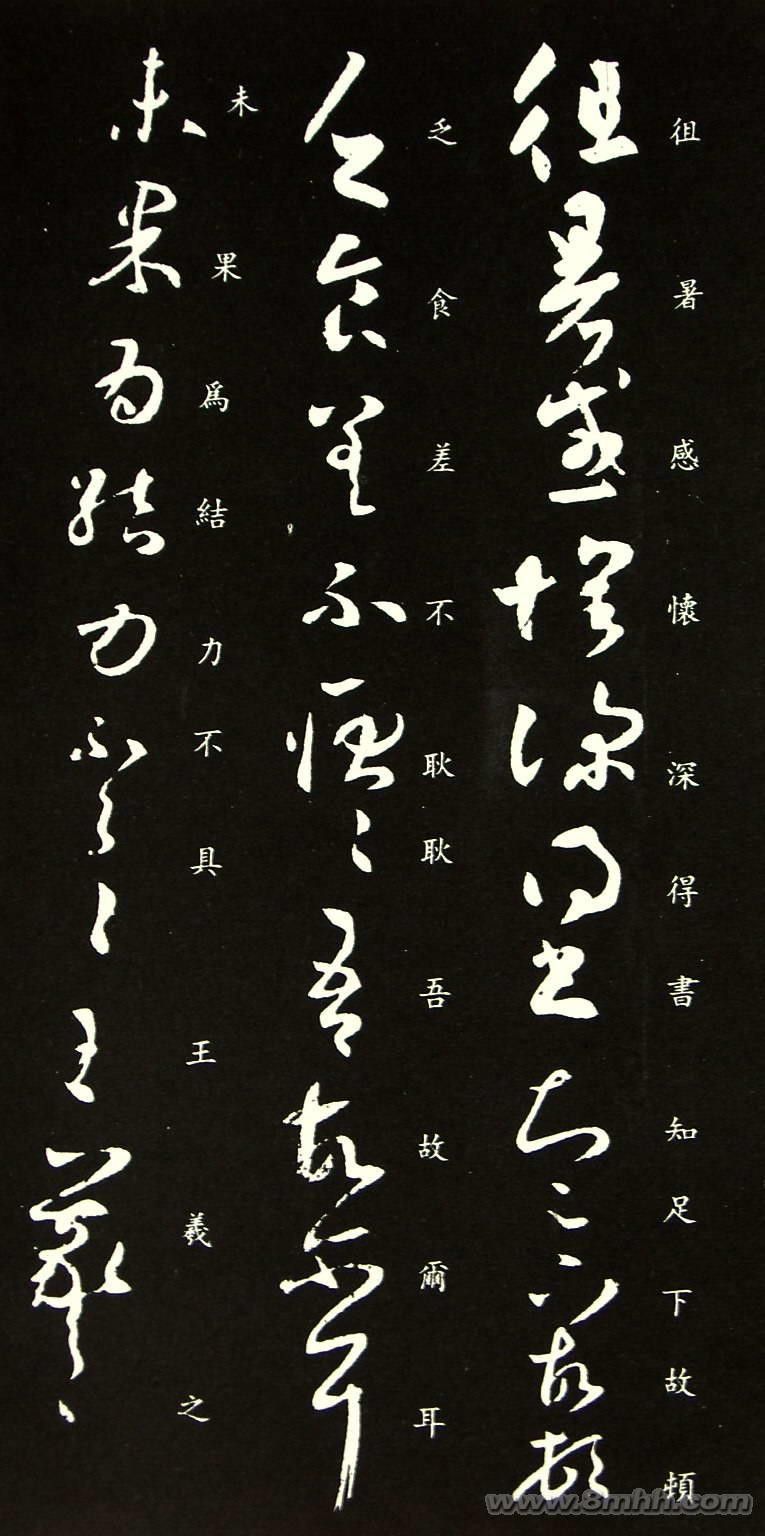 徂暑感懷深得書知足下故頓
乏食差不耿耿吾故爾耳
未果爲結力不具王羲之
www.8mhh.com